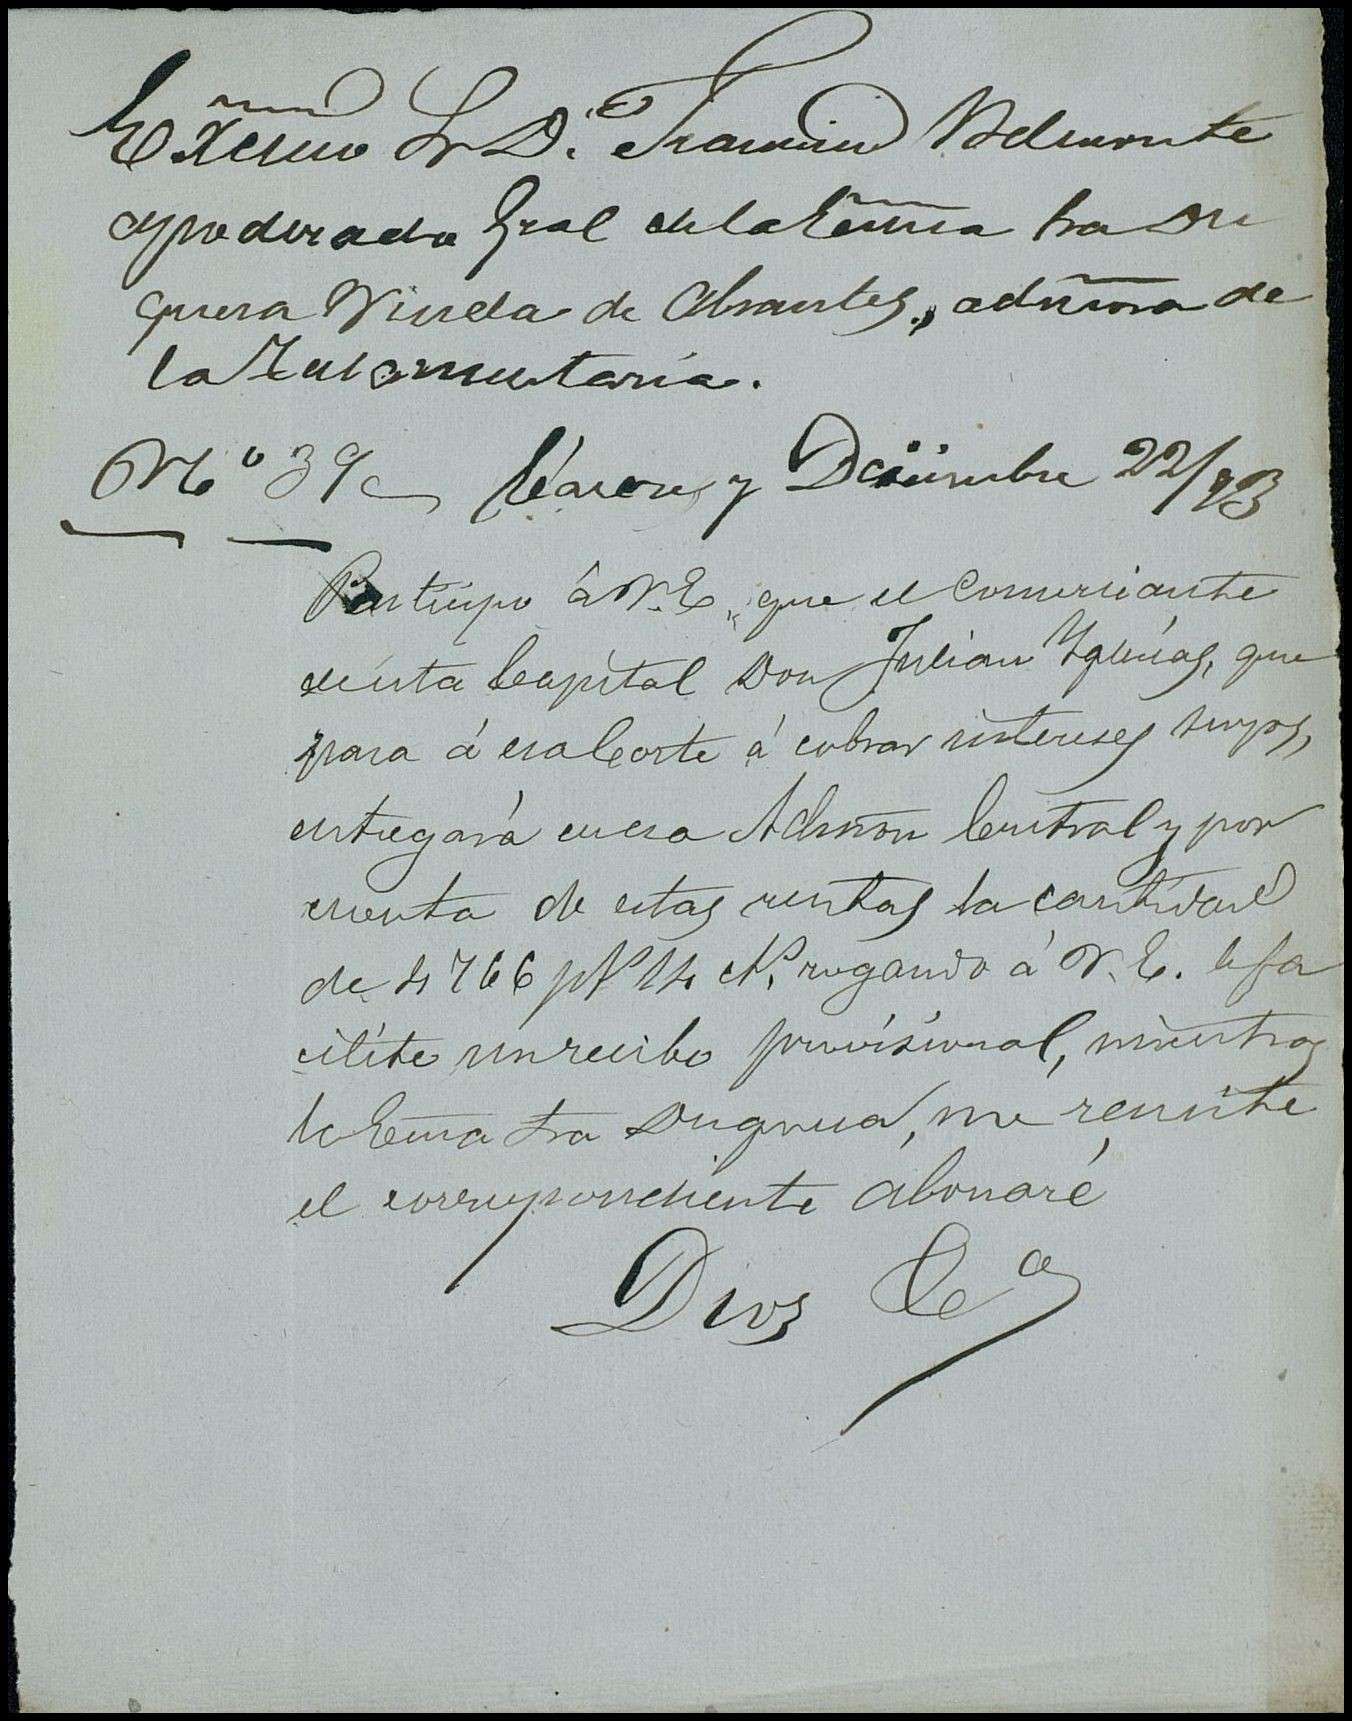 Excmo Sr D. Francisco Belmonte
apoderado Gral de la Excma Sra Du
quesa Viuda de Abrantes, admora de
la Testamentaría.
Nº 39 Cáceres y Diciembre 22/93
Participo á V.E. que el comerciante
de esta Capital Don Julian Yglesias, que
pasa á esa Corte á cobrar intereses suyos,
entregará en esa Admon Central y por
cuenta de estas rentas la cantidad
de 4766 pts 14 cts, rogando á V.E. le fa
cilite un recibo provisional, mientras
la Excma Sra Duquesa, me remite
el correspondiente abonaré
Dios &a